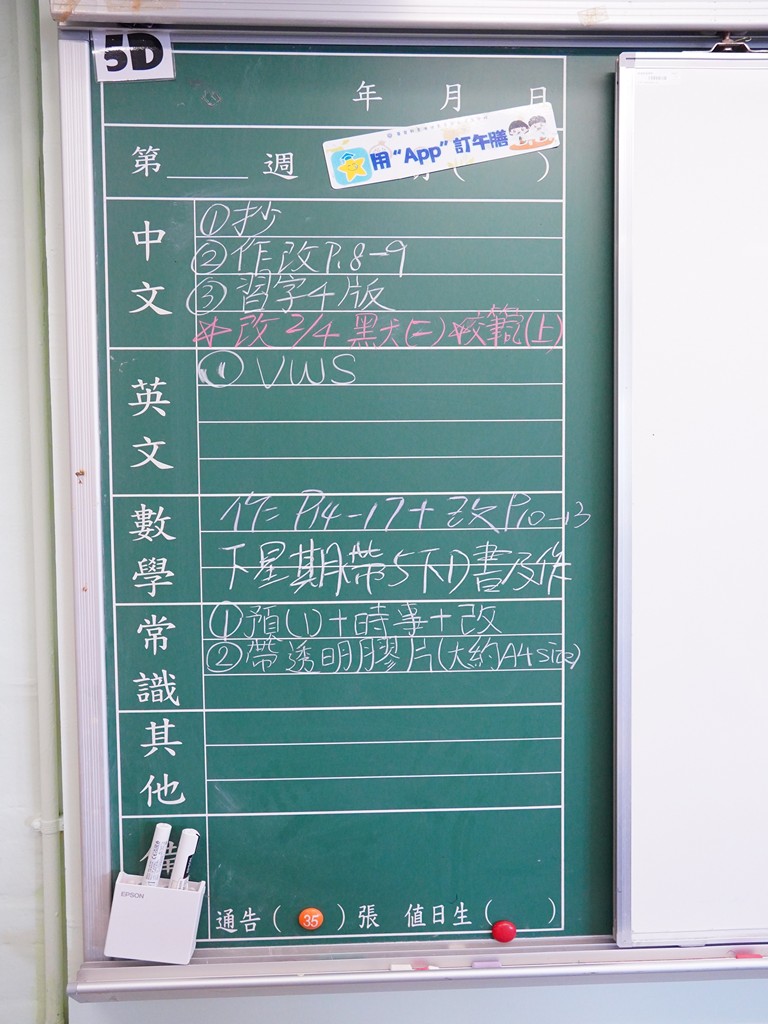 5D
年 月 日
用“App”訂午膳
第____週 ( )
中文
①抄
②作改P.8-9
③習字4版
☆改2/4黑犬(二)☆校範(上)
英文
① VWS
數學
作= P14-17+改P10-13
下星期帶5下D書及作
常識
①預(1)+時事+改
②帶透明膠片(大約A4 size)
其他
備
EPSON
通告( 35 )張 值日生( )